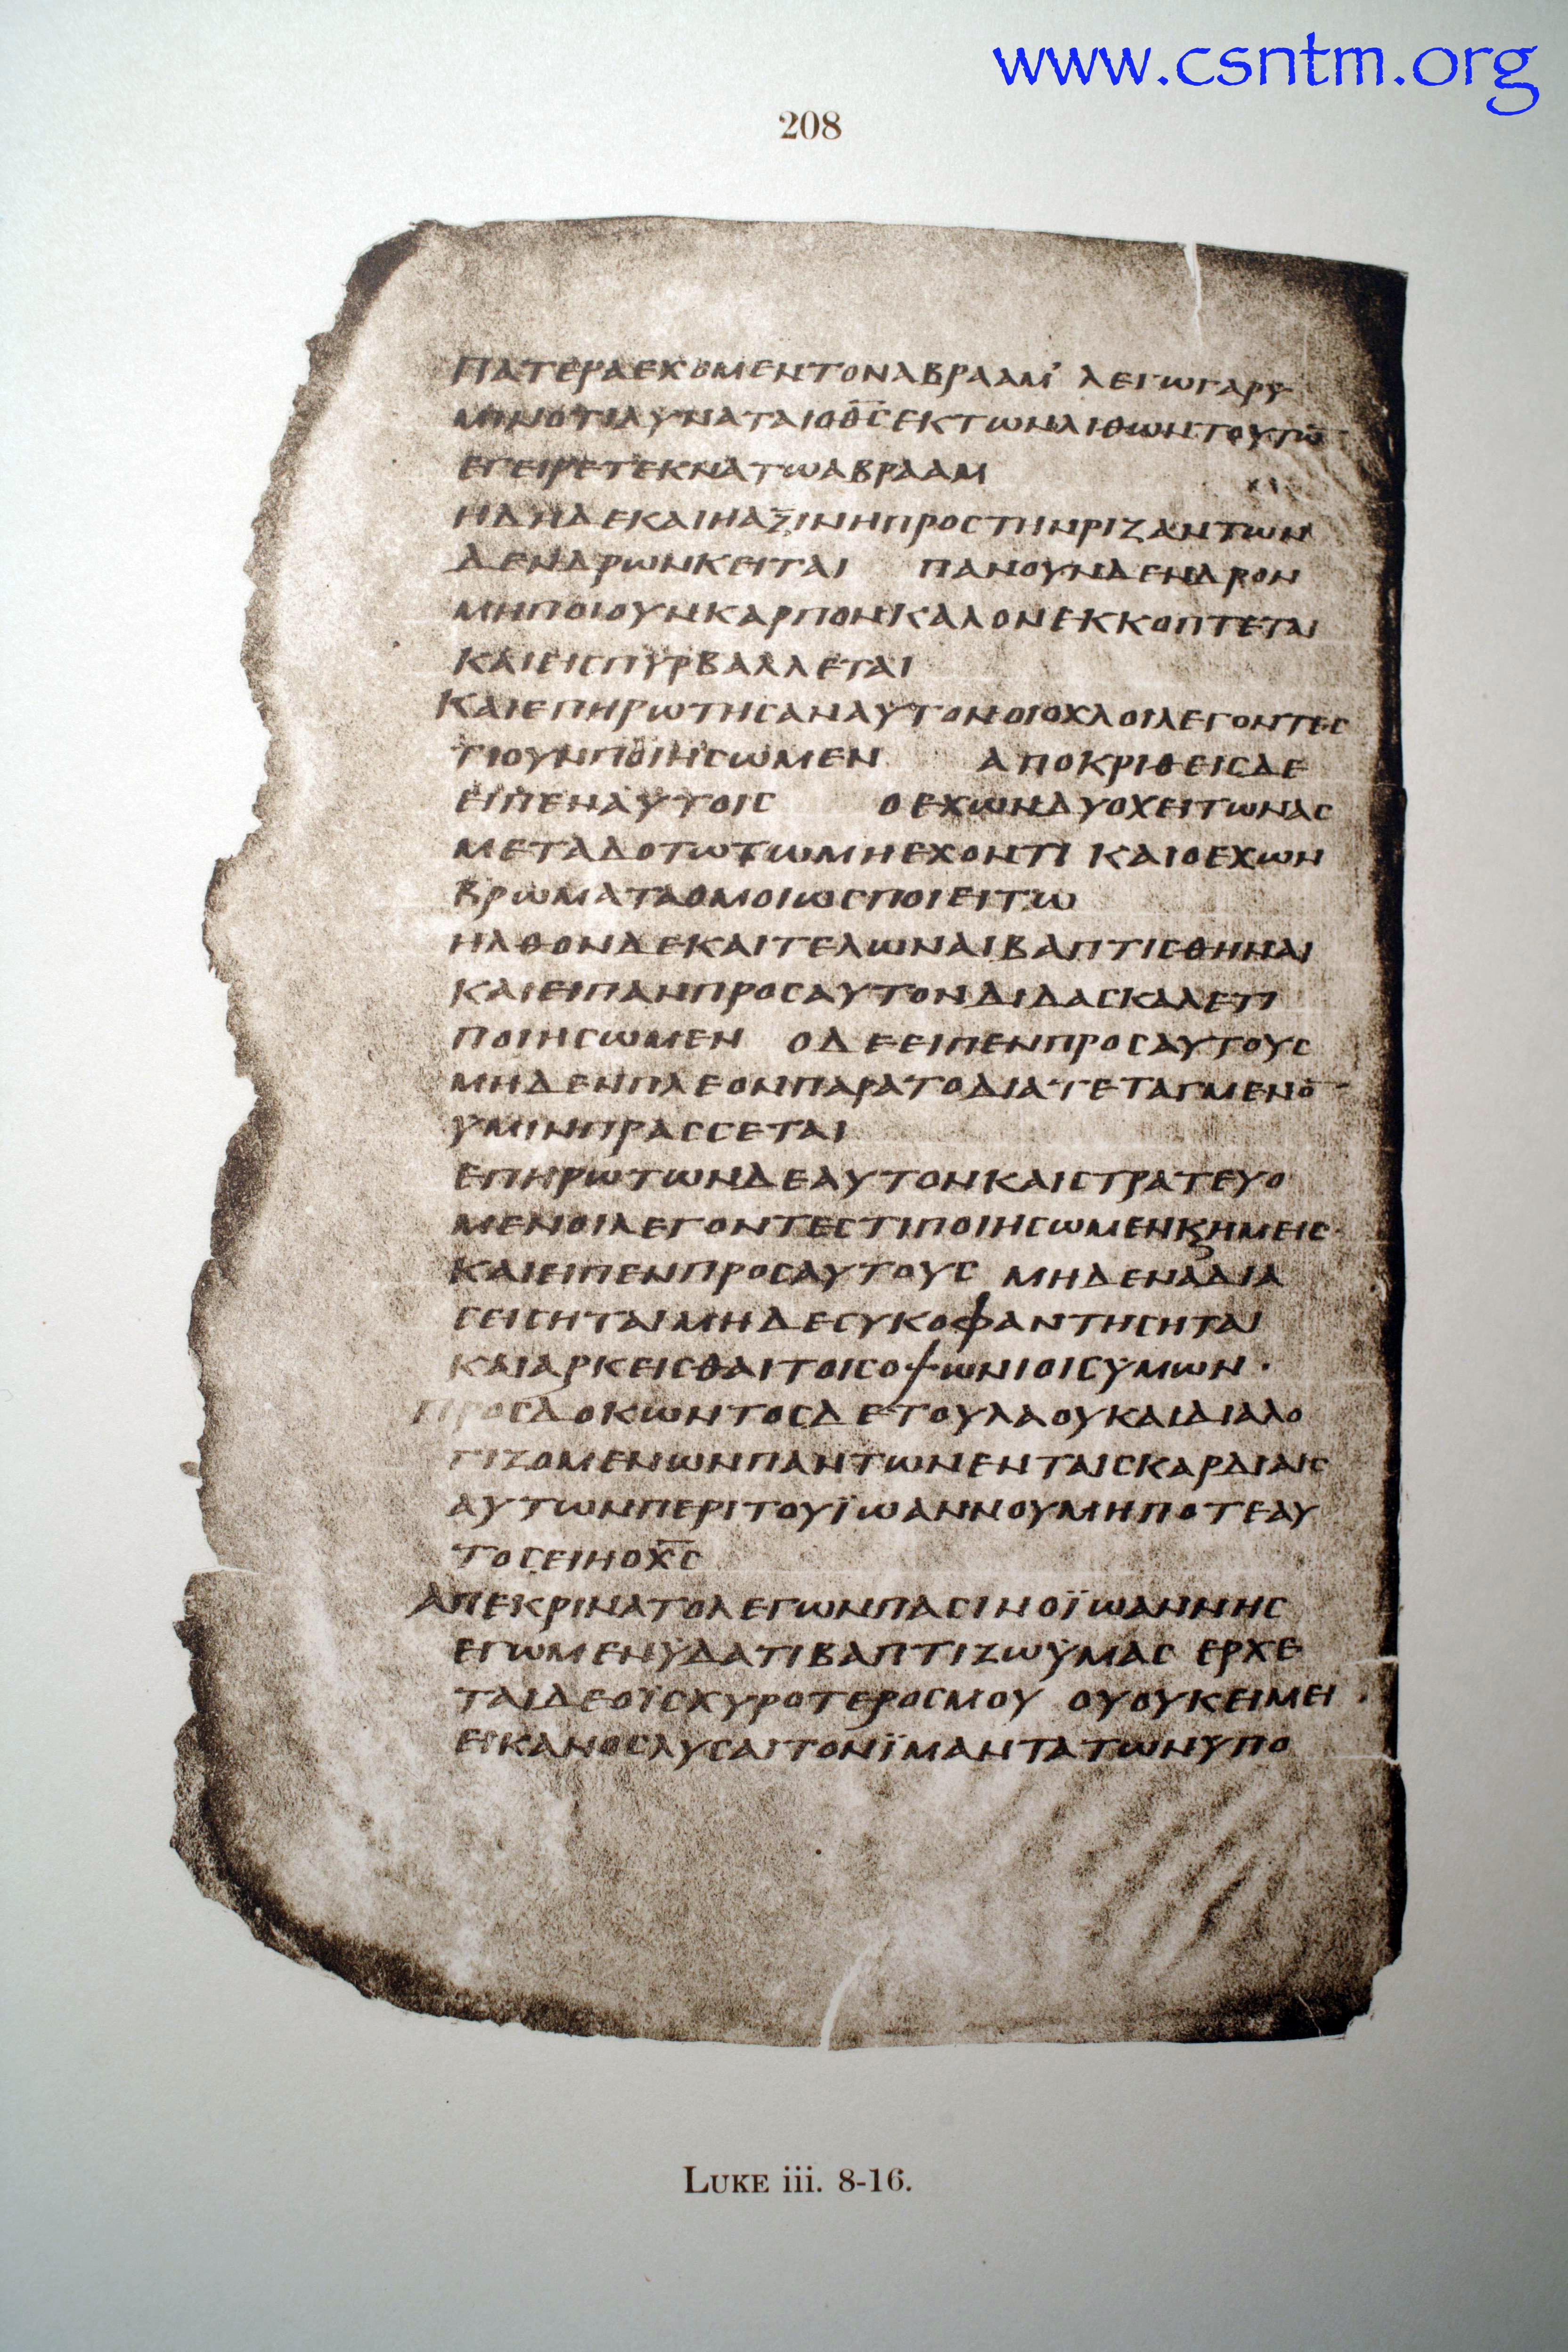 www.csntm.org
208
ΠΑΤΕΡΑΕΧΟΜΕΝΤΟΝΑΒΡΑΑΜ' ΛΕΓΩΓΑΡΥ
ΜΙΝΟΤΙΔΥΝΑΤΑΙΟΘ̅Σ̅ΕΚΤΩΝΛΙΘΩΝΤΟΥΤΩ̅
ΕΓΕΙΡΕΤΕΚΝΑΤΩΑΒΡΑΑΜ
ΗΔΗΔΕΚΑΙΗΑΞΙΝΗΠΡΟΣΤΗΝΡΙΖΑΝΤΩΝ
ΔΕΝΔΡΩΝΚΕΙΤΑΙ ΠΑΝΟΥΝΔΕΝΔΡΟΝ
ΜΗΠΟΙΟΥΝΚΑΡΠΟΝΚΑΛΟΝΕΚΚΟΠΤΕΤΑΙ
ΚΑΙΕΙΣΠΥΡΒΑΛΛΕΤΑΙ
ΚΑΙΕΠΗΡΩΤΗΣΑΝΑΥΤΟΝΟΙΟΧΛΟΙΛΕΓΟΝΤΕΣ
ΤΙΟΥΝΠΟΙΗΣΩΜΕΝ ΑΠΟΚΡΙΘΕΙΣΔΕ
ΕΙΠΕΝΑΥΤΟΙΣ ΟΕΧΩΝΔΥΟΧΕΙΤΩΝΑΣ
ΜΕΤΑΔΟΤΩΤΩΜΗΕΧΟΝΤΙ ΚΑΙΟΕΧΩΝ
ΒΡΩΜΑΤΑΟΜΟΙΩΣΠΟΙΕΙΤΩ
ΗΛΘΟΝΔΕΚΑΙΤΕΛΩΝΑΙΒΑΠΤΙΣΘΗΝΑΙ
ΚΑΙΕΙΠΑΝΠΡΟΣΑΥΤΟΝΔΙΔΑΣΚΑΛΕΤΙ
ΠΟΙΗΣΩΜΕΝ ΟΔΕΕΙΠΕΝΠΡΟΣΑΥΤΟΥΣ
ΜΗΔΕΝΠΛΕΟΝΠΑΡΑΤΟΔΙΑΤΕΤΑΓΜΕΝΟ̅
ΥΜΙΝΠΡΑΣΣΕΤΑΙ
ΕΠΗΡΩΤΩΝΔΕΑΥΤΟΝΚΑΙΣΤΡΑΤΕΥΟ
ΜΕΝΟΙΛΕΓΟΝΤΕΣΤΙΠΟΙΗΣΩΜΕΝΚ̣ΗΜΕΙΣ·
ΚΑΙΕΙΠΕΝΠΡΟΣΑΥΤΟΥΣ ΜΗΔΕΝΑΔΙΑ
ΣΕΙΣΗΤΑΙΜΗΔΕΣΥΚΟΦΑΝΤΗΣΗΤΑΙ
ΚΑΙΑΡΚΕΙΣΘΑΙΤΟΙΣΟΨΩΝΙΟΙΣΥΜΩΝ·
ΠΡΟΣΔΟΚΩΝΤΟΣΔΕΤΟΥΛΑΟΥΚΑΙΔΙΑΛΟ
ΓΙΖΟΜΕΝΩΝΠΑΝΤΩΝΕΝΤΑΙΣΚΑΡΔΙΑΙΣ
ΑΥΤΩΝΠΕΡΙΤΟΥΪΩΑΝΝΟΥΜΗΠΟΤΕΑΥ
ΤΟΣΕΙΗΟΧ̅Σ̅
ΑΠΕΚΡΙΝΑΤΟΛΕΓΩΝΠΑΣΙΝΟΪΩΑΝΝΗΣ
ΕΓΩΜΕΝΫΔΑΤΙΒΑΠΤΙΖΩΫΜΑΣ ΕΡΧΕ
ΤΑΙΔΕΟΪΣΧΥΡΟΤΕΡΟΣΜΟΥ ΟΥΟΥΚΕΙΜΕΙ
ΕΙΚΑΝΟΣΛΥΣΑΙΤΟΝΪΜΑΝΤΑΤΩΝΥΠΟ
LUKE iii. 8-16.